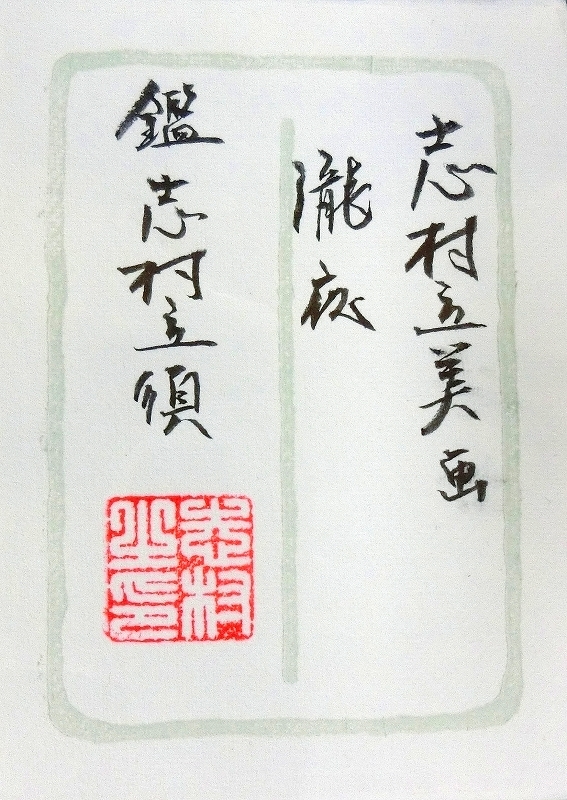 志村立美画
朧夜
鑑 志村立須
志村
之印